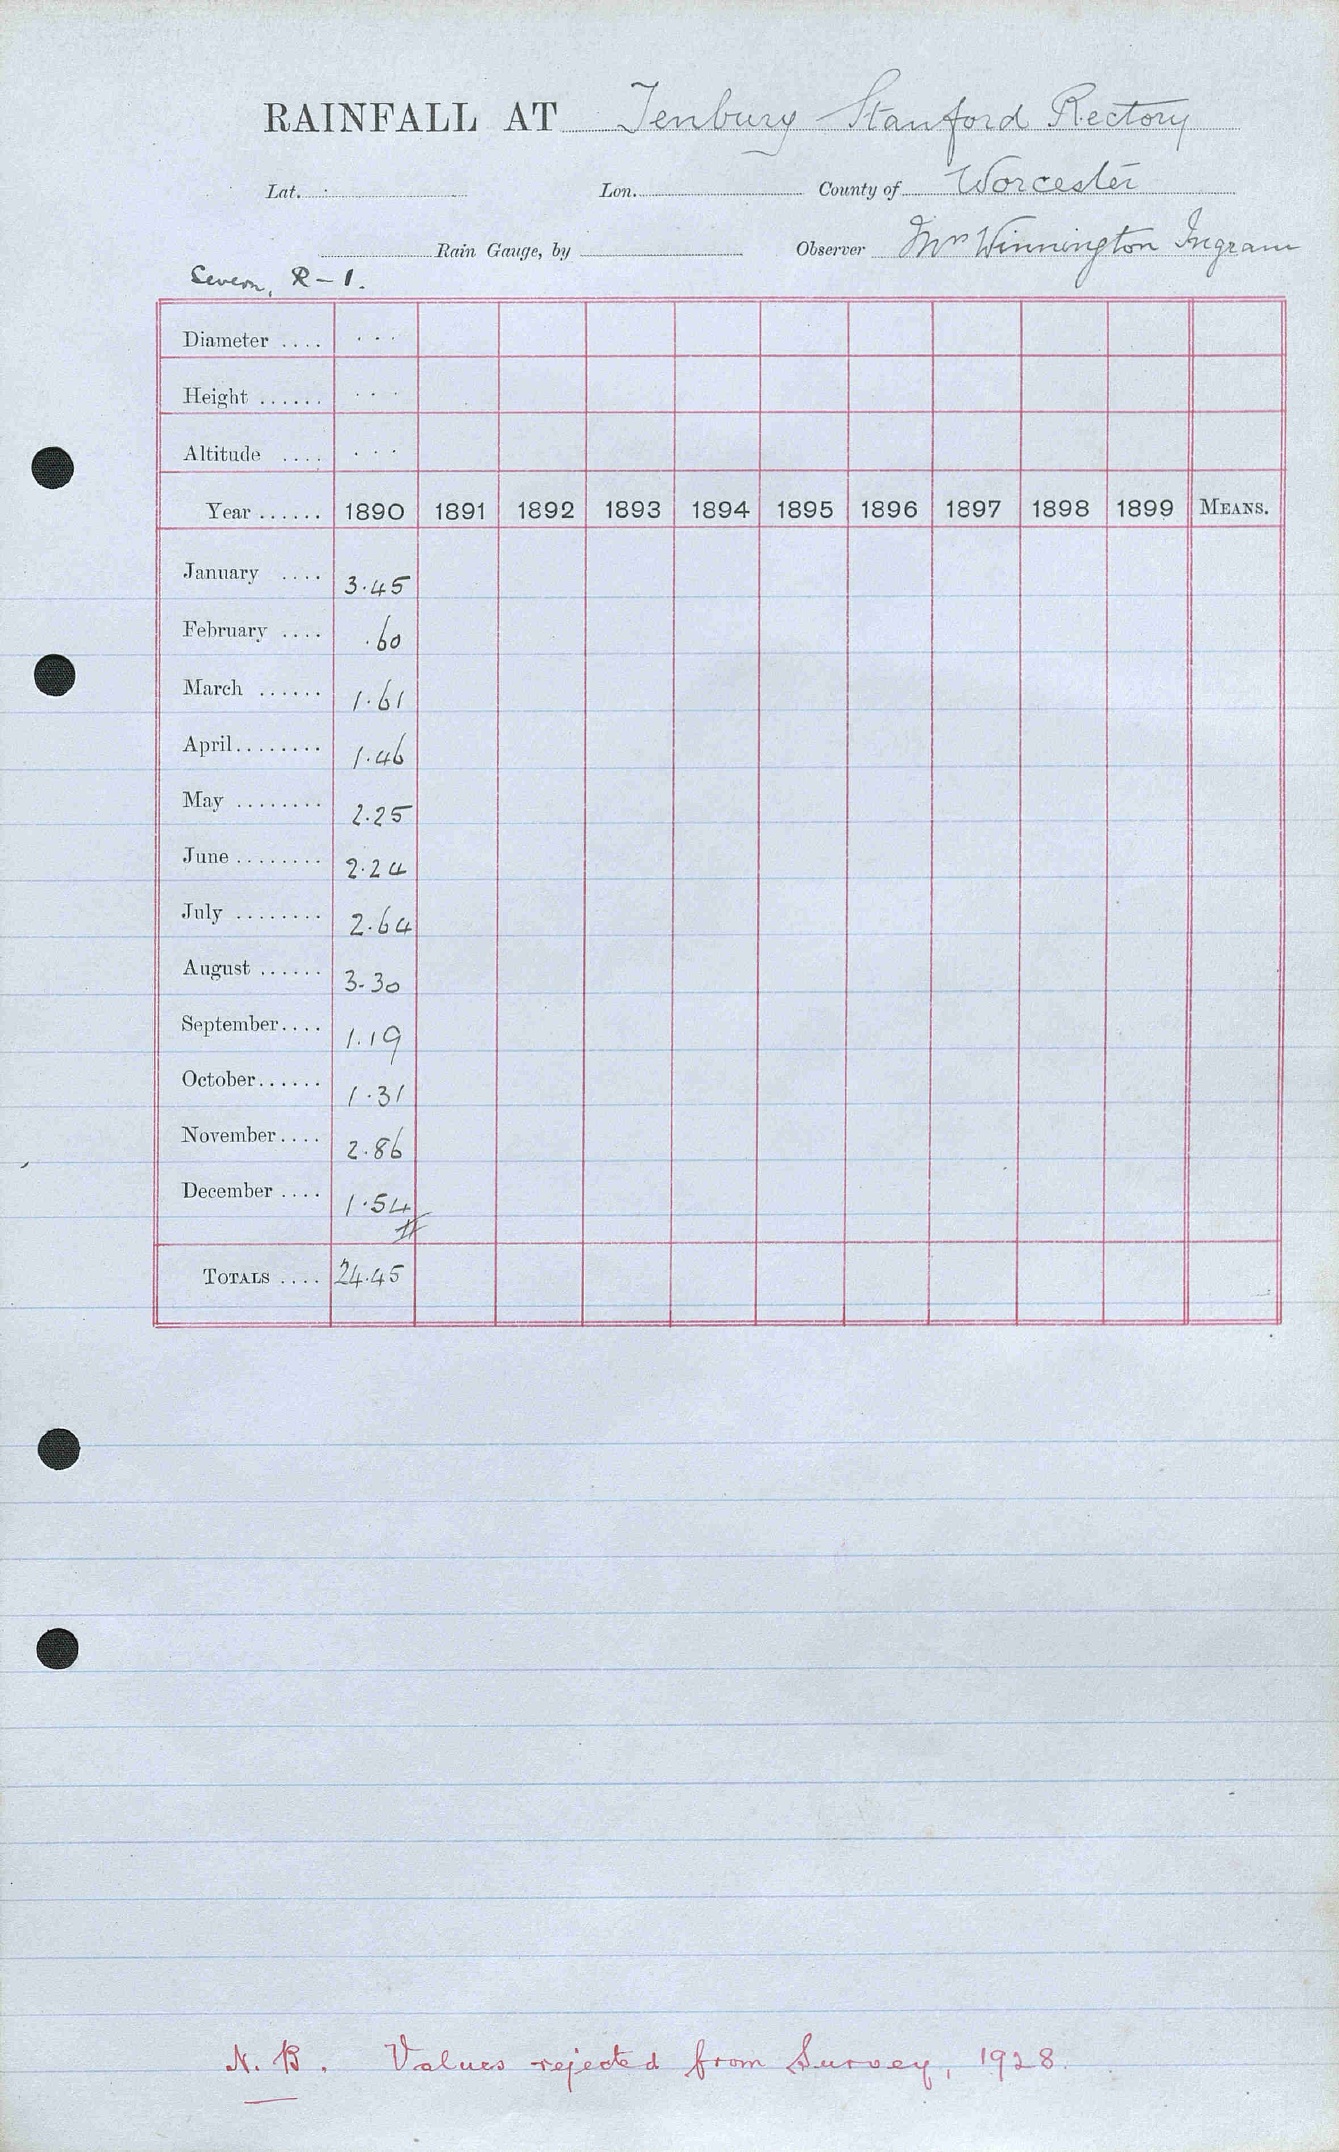 RAINFALL AT Tenbury Stanford Rectory
Lat. Lon. County of Worcester
Rain Gauge, by Observer Mrs Winnington Ingram
Severn, R-1.
Diameter .... ...
Height ...... ...
Altitude .... ...
Year ...... 1890 1891 1892 1893 1894 1895 1896 1897 1898 1899 MEANS.
January .... 3.45
February .... .60
March ...... 1.61
April ........ 1.46
May ........ 2.25
June ........ 2.24
July ........ 2.64
August ...... 3.30
September .... 1.19
October ...... 1.31
November .... 2.86
December .... 1.54
TOTALS .... 24.45
N.B. Values rejected from Survey, 1928.